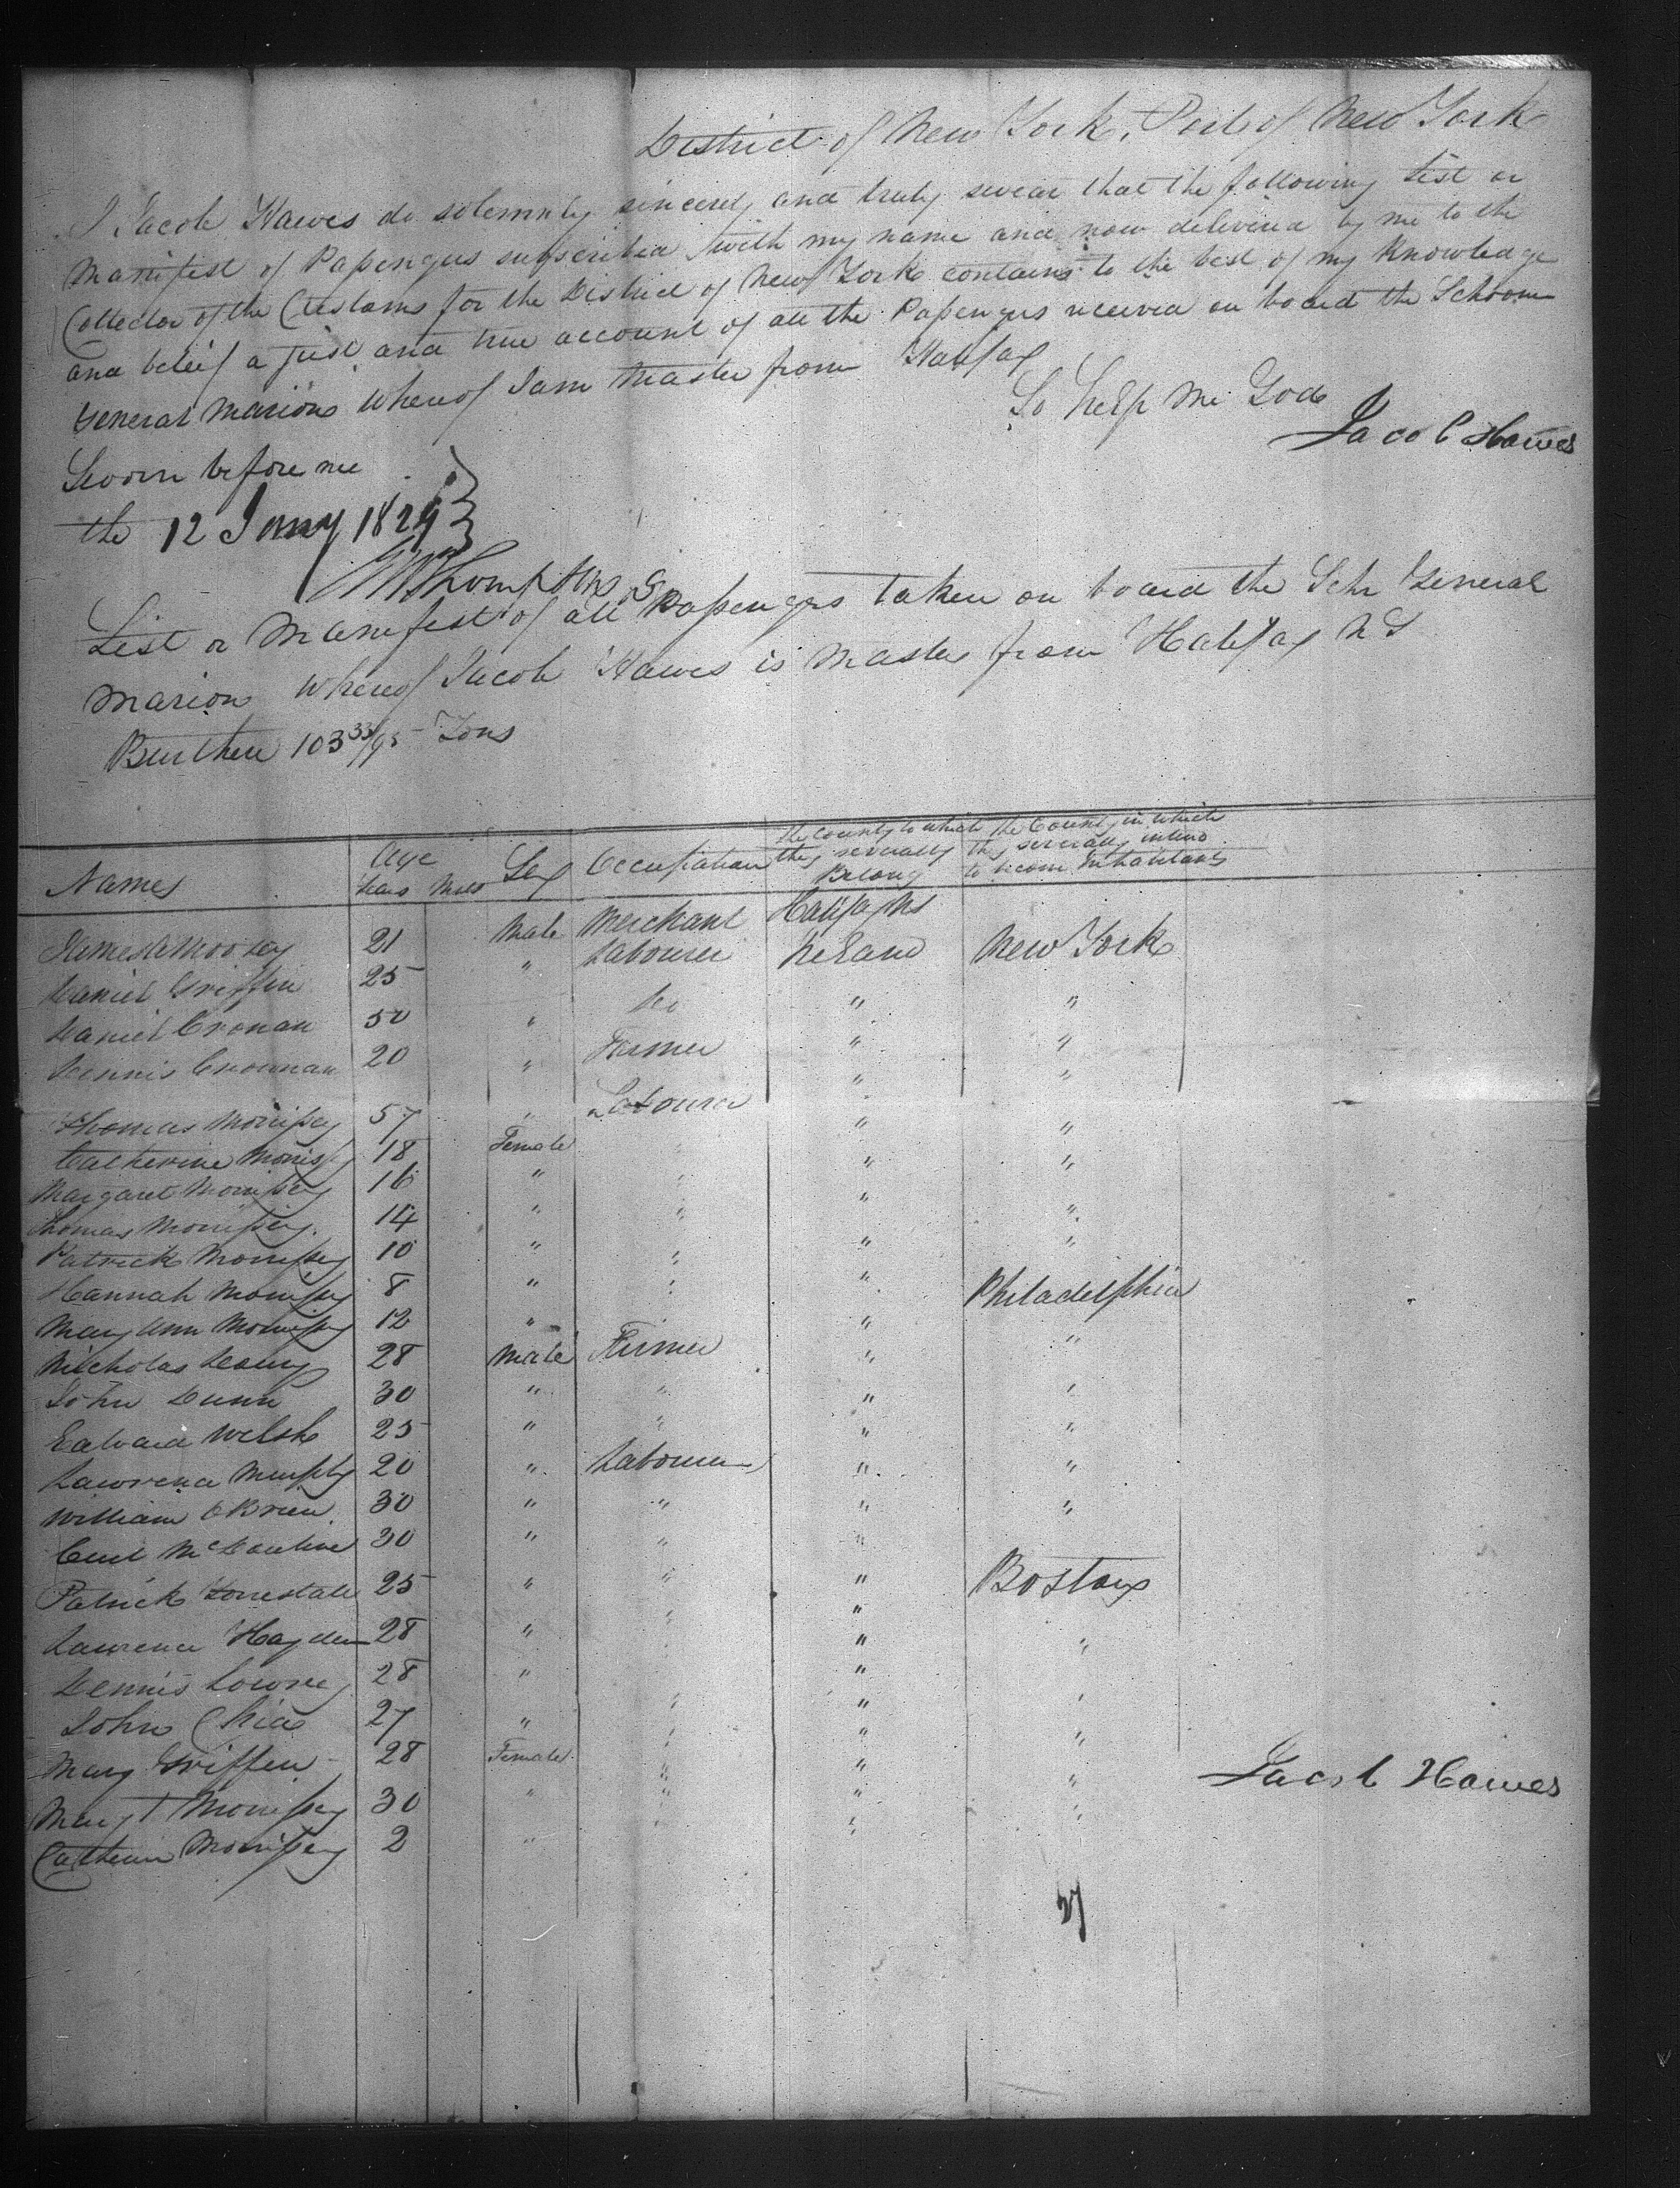 District of New York, Port of New York
I Jacob Hawes do solemnly sincerely and truly swear that the following List or
Manifest of Passengers subscribed with my name and now delivered by me to the
Collector of the Customs for the District of New York contains to the best of my Knowledge
and belief a just and true account of all the Passengers received on board the Schooner
General Marion whereof I am Master from Halifax
So help me God
Jacob Hawes
Sworn before me
the 12 Jany 1829
Thompson
List or Manifest of all Passengers taken on board the Schr General
Marion whereof Jacob Hawes is Master from Halifax NS
Burthen 103 33/95 Tons
Names Age Years Mos Sex Occupation the Country to which they severally Belong the Country in which they severally intend to become Inhabitants
James 21 Male Merchant Halifax NS
Daniel Griffin 25 " Labourer Ireland New York
Daniel Cronan 50 " Do " "
Dennis Crownan 20 " Farmer " "
Thomas Morrissey 57 " Labourer " "
Catherine Morrissy 18 Female " " "
Margaret Morrissey 16 " " " "
Thomas Morrissey 14 " " " "
Patrick Morrissey 10 " " " "
Hannah Morrissey 8 " " " Philadelphia
Mary Ann Morrissey 12 " " "
Nicholas 28 Male Farmer " "
John Dunn 30 " " " "
Edward Welsh 25 " " " "
Lawrence Murphy 20 " Labourer " "
William OBrien 30 " " " "
30 " " "
Patrick 25 " " " Boston
Lawrence Hayden 28 " " "
Dennis Lowrey 28 " " "
John 27 " " " "
Mary Griffen 28 Female " " "
Margt Morrissey 30 " " " "
Catherine Morrissey 2 " " "
Jacob Hawes